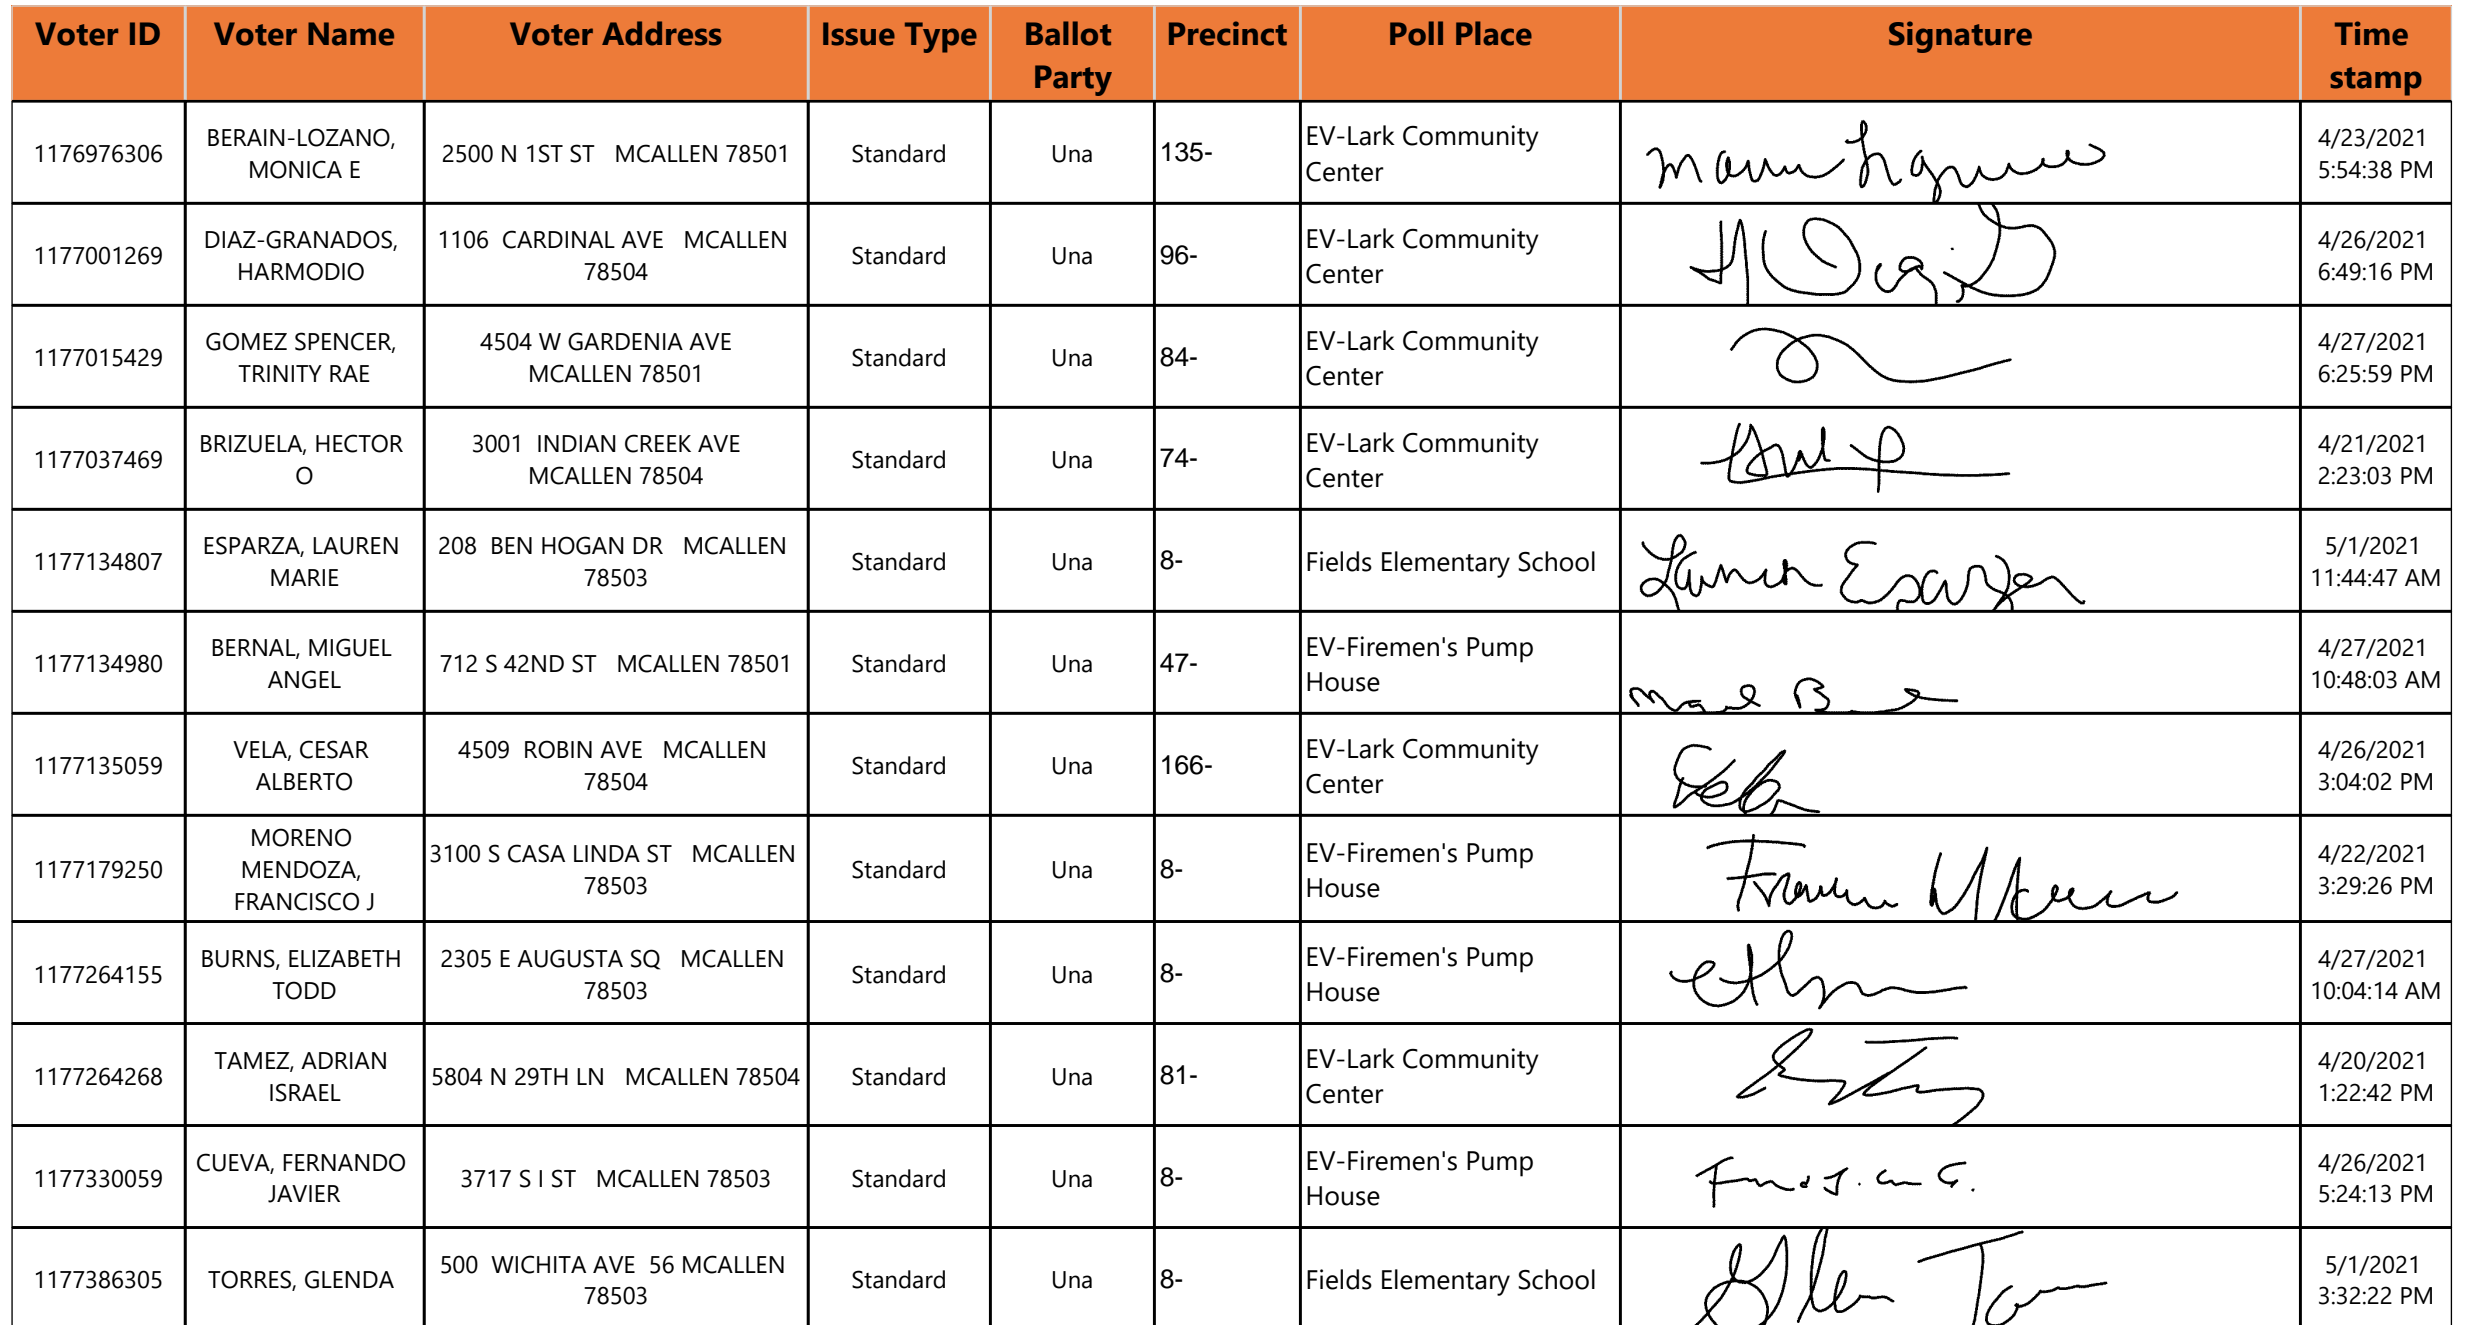 Voter ID Voter Name Voter Address Issue Type Ballot Party Precinct Poll Place Signature Time stamp
1176976306 BERAIN-LOZANO, MONICA E 2500 N 1ST ST MCALLEN 78501 Standard Una 135- EV-Lark Community Center 4/23/2021 5:54:38 PM
1177001269 DIAZ-GRANADOS, HARMODIO 1106 CARDINAL AVE MCALLEN 78504 Standard Una 96- EV-Lark Community Center 4/26/2021 6:49:16 PM
1177015429 GOMEZ SPENCER, TRINITY RAE 4504 W GARDENIA AVE MCALLEN 78501 Standard Una 84- EV-Lark Community Center 4/27/2021 6:25:59 PM
1177037469 BRIZUELA, HECTOR O 3001 INDIAN CREEK AVE MCALLEN 78504 Standard Una 74- EV-Lark Community Center 4/21/2021 2:23:03 PM
1177134807 ESPARZA, LAUREN MARIE 208 BEN HOGAN DR MCALLEN 78503 Standard Una 8- Fields Elementary School Lauren Esparza 5/1/2021 11:44:47 AM
1177134980 BERNAL, MIGUEL ANGEL 712 S 42ND ST MCALLEN 78501 Standard Una 47- EV-Firemen's Pump House 4/27/2021 10:48:03 AM
1177135059 VELA, CESAR ALBERTO 4509 ROBIN AVE MCALLEN 78504 Standard Una 166- EV-Lark Community Center 4/26/2021 3:04:02 PM
1177179250 MORENO MENDOZA, FRANCISCO J 3100 S CASA LINDA ST MCALLEN 78503 Standard Una 8- EV-Firemen's Pump House 4/22/2021 3:29:26 PM
1177264155 BURNS, ELIZABETH TODD 2305 E AUGUSTA SQ MCALLEN 78503 Standard Una 8- EV-Firemen's Pump House 4/27/2021 10:04:14 AM
1177264268 TAMEZ, ADRIAN ISRAEL 5804 N 29TH LN MCALLEN 78504 Standard Una 81- EV-Lark Community Center 4/20/2021 1:22:42 PM
1177330059 CUEVA, FERNANDO JAVIER 3717 S I ST MCALLEN 78503 Standard Una 8- EV-Firemen's Pump House 4/26/2021 5:24:13 PM
1177386305 TORRES, GLENDA 500 WICHITA AVE 56 MCALLEN 78503 Standard Una 8- Fields Elementary School 5/1/2021 3:32:22 PM